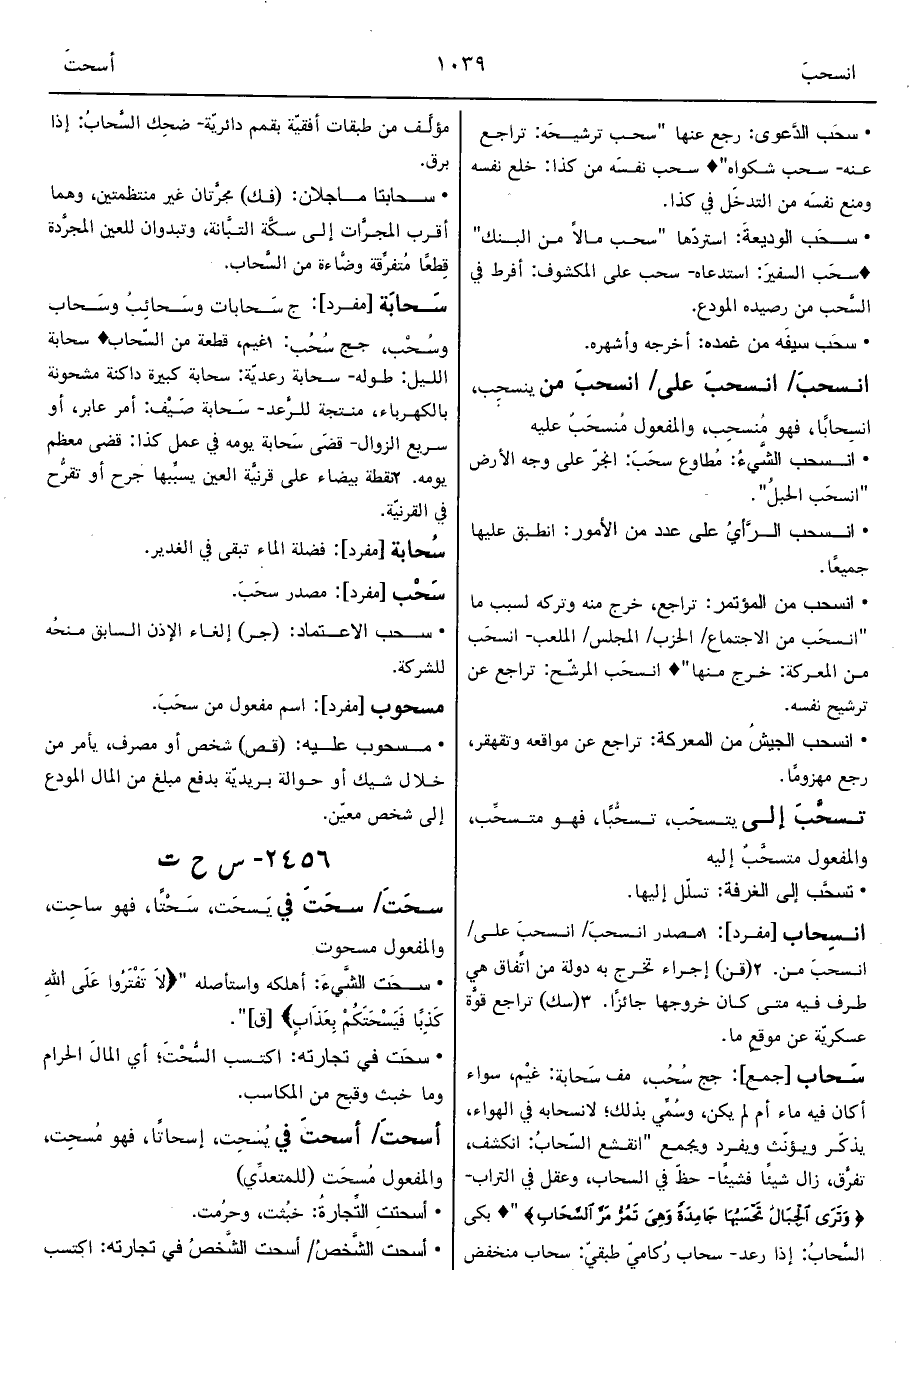 انسحبَ
١٠٣٩
أسحتَ
• سحَب الدَّعوى: رجع عنها "سحب ترشيحَه: تراجع
عنه- سحب شكواه"♦ سحب نفسَه من كذا: خلع نفسه
ومنع نفسَه من التدخّل في كذا.
• سحَب الوديعةَ: استردّها "سحب مالاً من البنك"
♦سحَب السفيرَ: استدعاه- سحب على المكشوف: أفرط في
السَّحب من رصيده المودع.
• سحَب سيفَه من غمده: أخرجه وأشهره.
انسحبَ/ انسحبَ على/ انسحبَ من ينسحِب،
انسحابًا، فهو مُنسحِب، والمفعول مُنسحَبٌ عليه
• انسحب الشَّيءُ: مُطاوع سحَبَ: انجرّ على وجه الأرض
"انسحَب الحبلُ".
• انسحب الرَّأيُ على عدد من الأمور: انطبق عليها
جميعًا.
• انسحب من المؤتمر: تراجع، خرج منه وتركه لسبب ما
"انسحَب من الاجتماع/ الحزب/ المجلس/ الملعب- انسحَب
من المعركة: خرج منها"♦ انسحَب المرشّح: تراجع عن
ترشيح نفسه.
• انسحب الجيشُ من المعركة: تراجع عن مواقعه وتقهقر،
رجع مهزومًا.
تسحَّبَ إلى يتسحَّب، تسحُّبًا، فهو متسحِّب،
والمفعول متسحَّبٌ إليه
• تسحَّب إلى الغرفة: تسلّل إليها.
انسِحاب [مفرد]: ١مصدر انسحبَ/ انسحبَ على/
انسحبَ من. ٢(قن) إجراء تخرج به دولة من اتّفاق هي
طرف فيه متى كان خروجها جائزًا. ٣(سك) تراجع قوَّة
عسكريّة عن موقعٍ ما.
سَحاب [جمع]: جج سُحُب، مف سَحابة: غيْم، سواء
أكان فيه ماء أم لم يكن، وسُمِّي بذلك؛ لانسحابه في الهواء،
يذكّر ويؤنّث ويفرد ويجمع "انقشع السَّحابُ: انكشف،
تفرَّق، زال شيئًا فشيئًا- حظّ في السحاب، وعقل في التراب-
﴿وَتَرَى الْجِبَالَ تَحْسَبُهَا جَامِدَةً وَهِيَ تَمُرُّ مَرَّ السَّحَابِ﴾"♦ بكى
السَّحابُ: إذا رعد- سحاب رُكاميّ طبقيّ: سحاب منخفض
مؤلَّف من طبقات أفقيّة بقمم دائريّة- ضحِك السَّحابُ: إذا
برق.
• سحابتا ماجلان: (فك) مجرَّتان غير منتظمتين، وهما
أقرب المجرَّات إلى سكَّة التبَّانة، وتبدوان للعين المجرَّدة
قطعًا مُتفرِّقة وضَّاءة من السَّحاب.
سَحابَة [مفرد]: ج سَحابات وسَحائبُ وسَحاب
وسُحْب، جج سُحُب: ١غيم، قطعة من السَّحاب♦ سحابة
الليل: طوله- سحابة رعديّة: سحابة كبيرة داكنة مشحونة
بالكهرباء، منتجة للرَّعد- سَحابة صَيْف: أمر عابر، أو
سريع الزوال- قضّى سَحابة يومه في عمل كذا: قضى معظم
يومه. ٢نقطة بيضاء على قرنيَّة العين يسبِّبها جَرح أو تقرُّح
في القرنيّة.
سُحابة [مفرد]: فضلة الماء تبقى في الغدير.
سَحْب [مفرد]: مصدر سحَبَ.
• سحب الاعتماد: (جر) إلغاء الإذن السابق منحُه
للشركة.
مسحوب [مفرد]: اسم مفعول من سحَبَ.
• مسحوب عليه: (قص) شخص أو مصرف، يأمر من
خلال شيك أو حوالة بريديّة بدفع مبلغ من المال المودع
إلى شخص معيّن.
٢٤٥٦- س ح ت
سحَتَ/ سحَتَ في يَسحَت، سَحْتًا، فهو ساحِت،
والمفعول مسحوت
• سحَت الشَّيءَ: أهلكه واستأصله "﴿لاَ تَفْتَرُوا عَلَى اللهِ
كَذِبًا فَيَسْحَتَكُمْ بِعَذَابٍ﴾ [ق]".
• سحَت في تجارته: اكتسب السُّحْتَ؛ أي المالَ الحرام
وما خبث وقبح من المكاسب.
أسحتَ/ أسحتَ في يُسحِت، إسحاتًا، فهو مُسحِت،
والمفعول مُسحَت (للمتعدِّي)
• أسحتتِ التِّجارةُ: خبُثت، وحرُمت.
• أسحت الشَّخصُ/ أسحت الشَّخصُ في تجارته: اكتسب